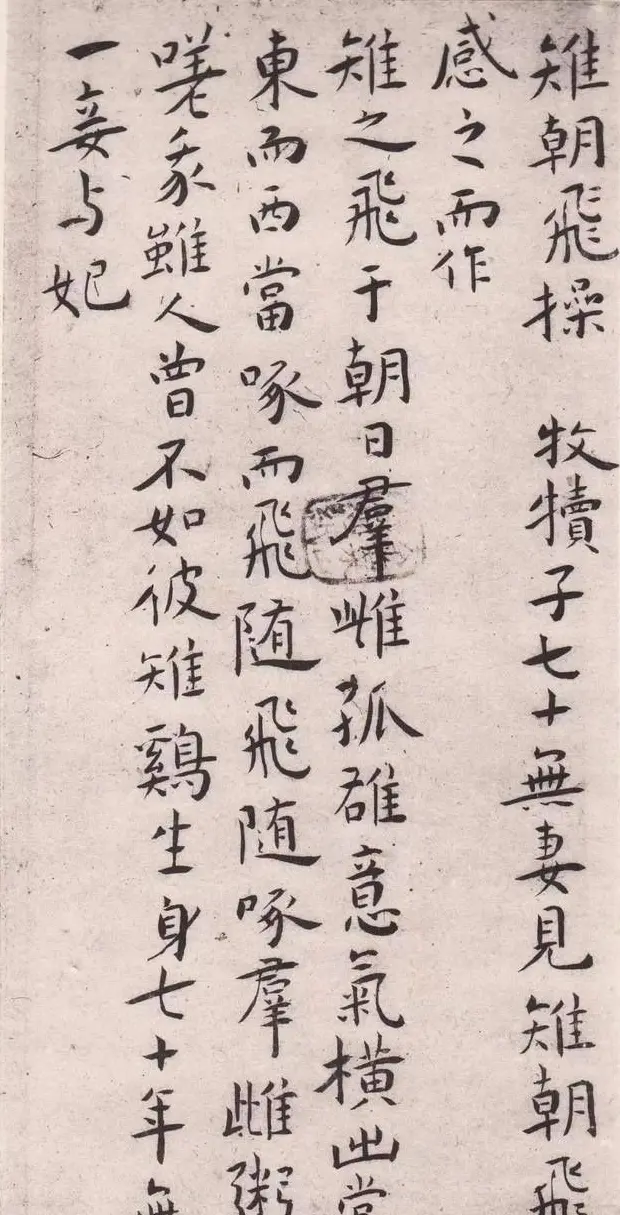 雉朝飛操　牧犢子七十無妻見雉朝飛
感之而作
雉之飛于朝日羣雌孤雄意氣橫出當
東而西當啄而飛随飛随啄羣雌粥
嗟我雖人曾不如彼雉鷄生身七十年無
一妾与妃